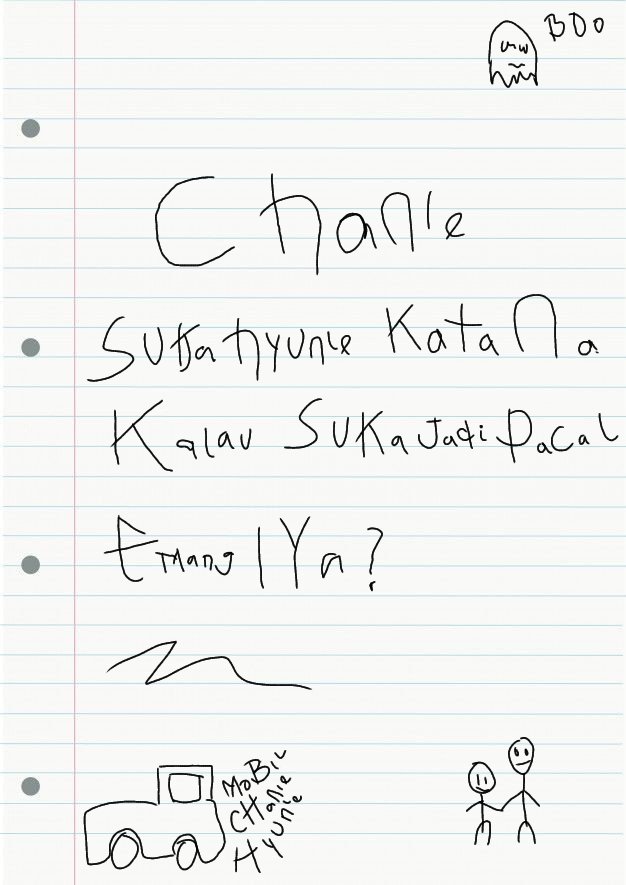 BOO
Chanie
SUKa hyunie Kata Na
Kalau SUKa Jadi Pacal
Emang IYa?
MoBiL
CHanie
HYUnie